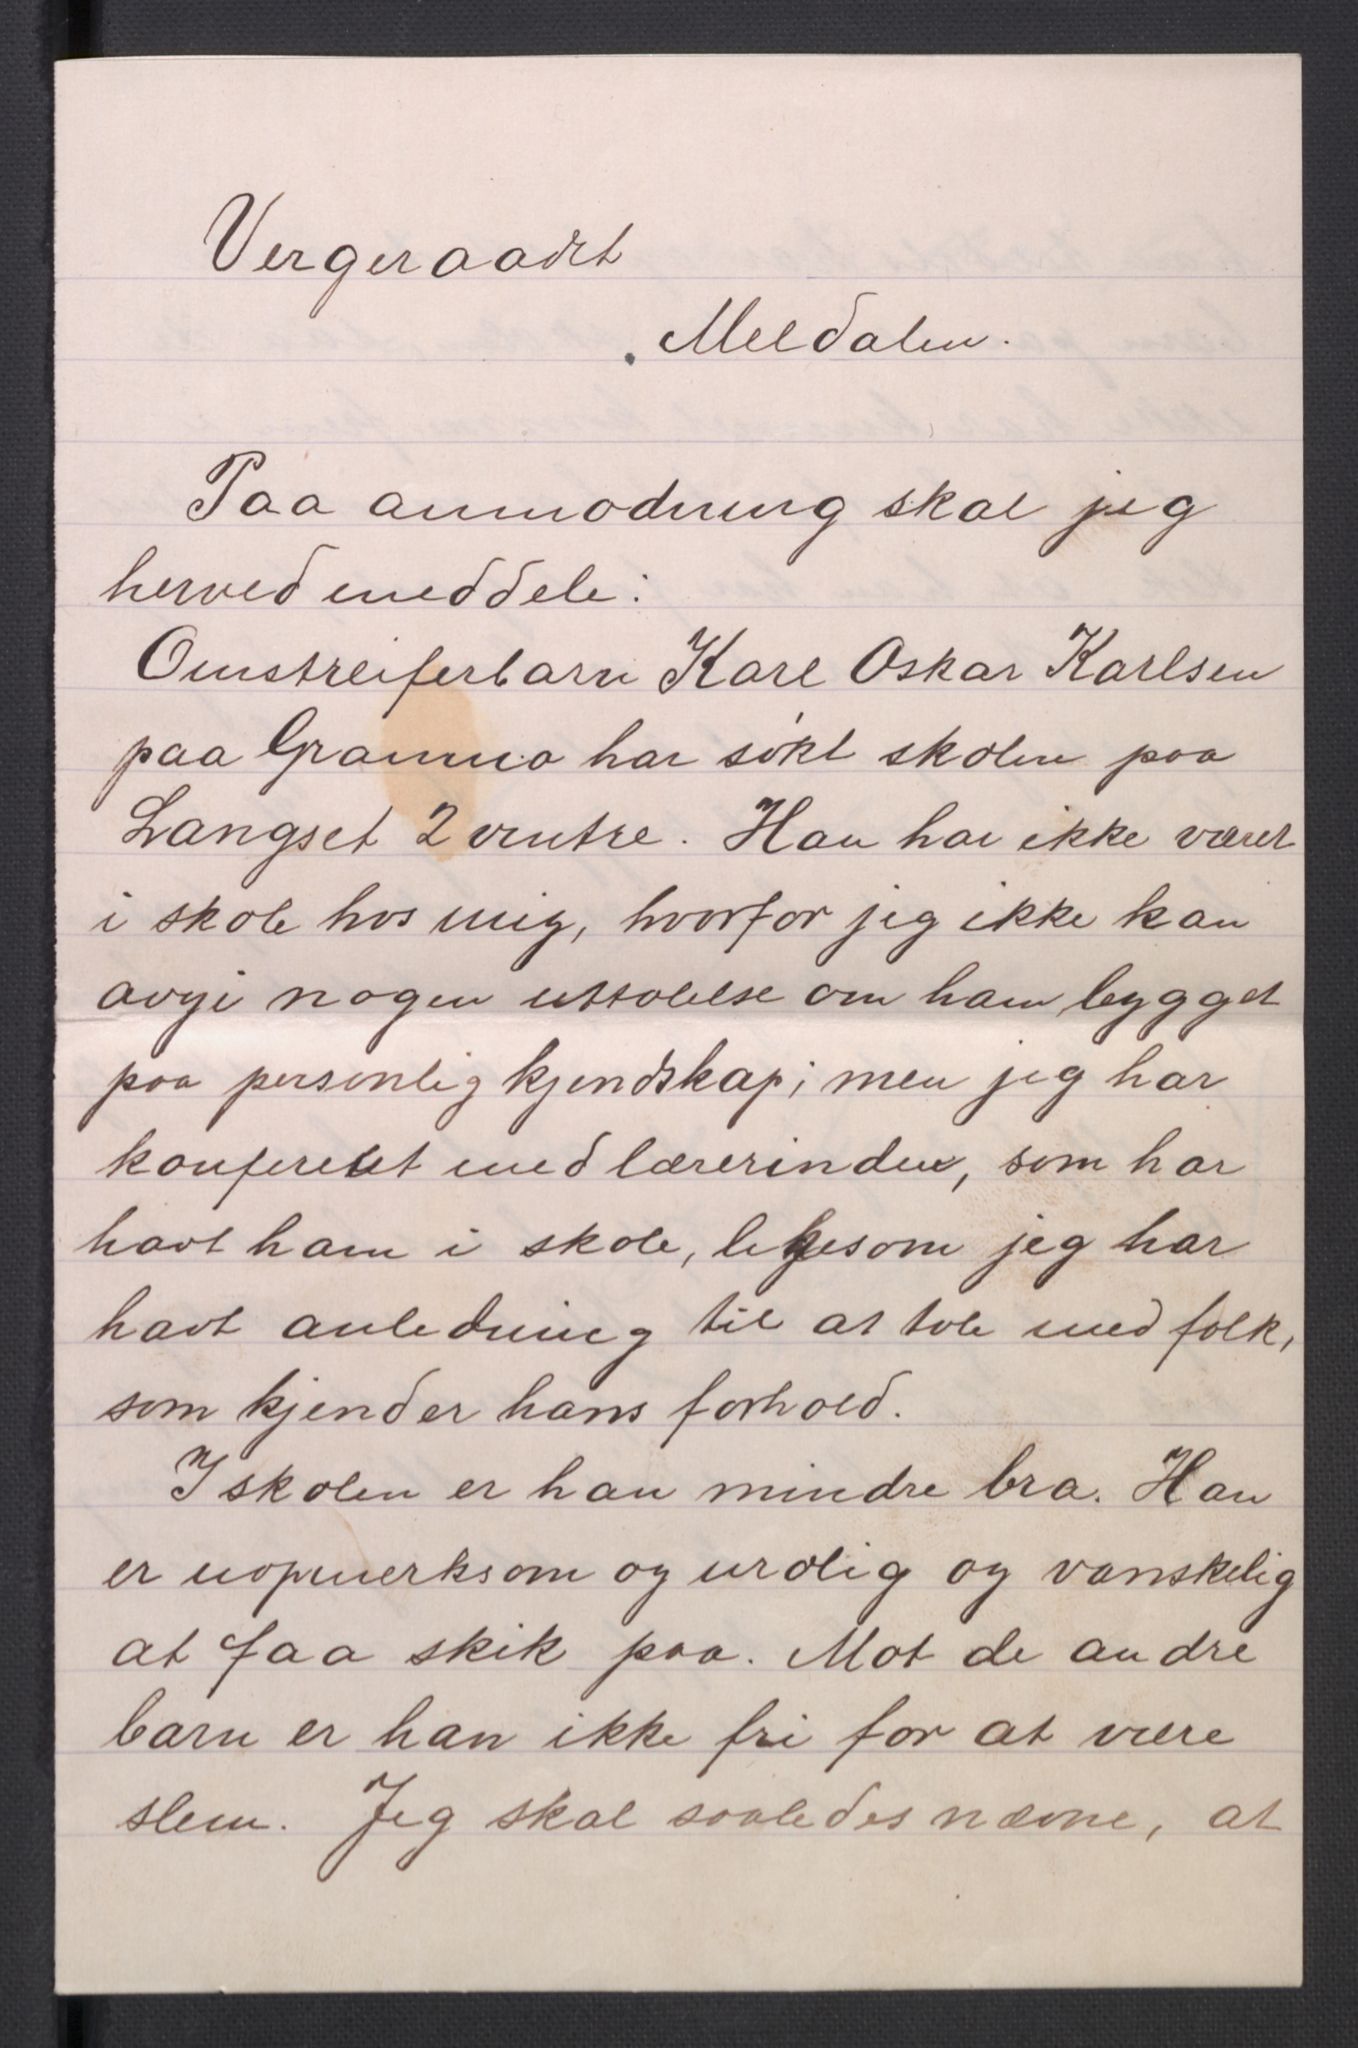 Vergeraadet
Meldalen.
Paa anmodning skal jeg
herved meddele:
Omstreiferbarn Karl Oskar Karlsen
paa Gramna har søkt skolen paa
Langset 2 vintre. Han har ikke været
i skole hos mig, hvorfor jeg ikke kan
avgi nogen uttalelse om ham bygget
paa personlig kjendskap; men jeg har
konferert med lærerinden, som har
havt ham i skole, likesom jeg har
havt anledning til at tale med folk,
som kjender hans forhold.
I skolen er han mindre bra. Han
er uopmerksom og urolig og vanskelig
at faa skik paa. Mot de andre
barn er han ikke fri for at være
slem. Jeg skal saaledes nævne, at